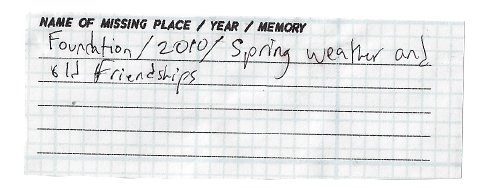 NAME OF MISSING PLACE / YEAR / MEMORY
Foundation / 2010 / Spring weather and
old Friendships